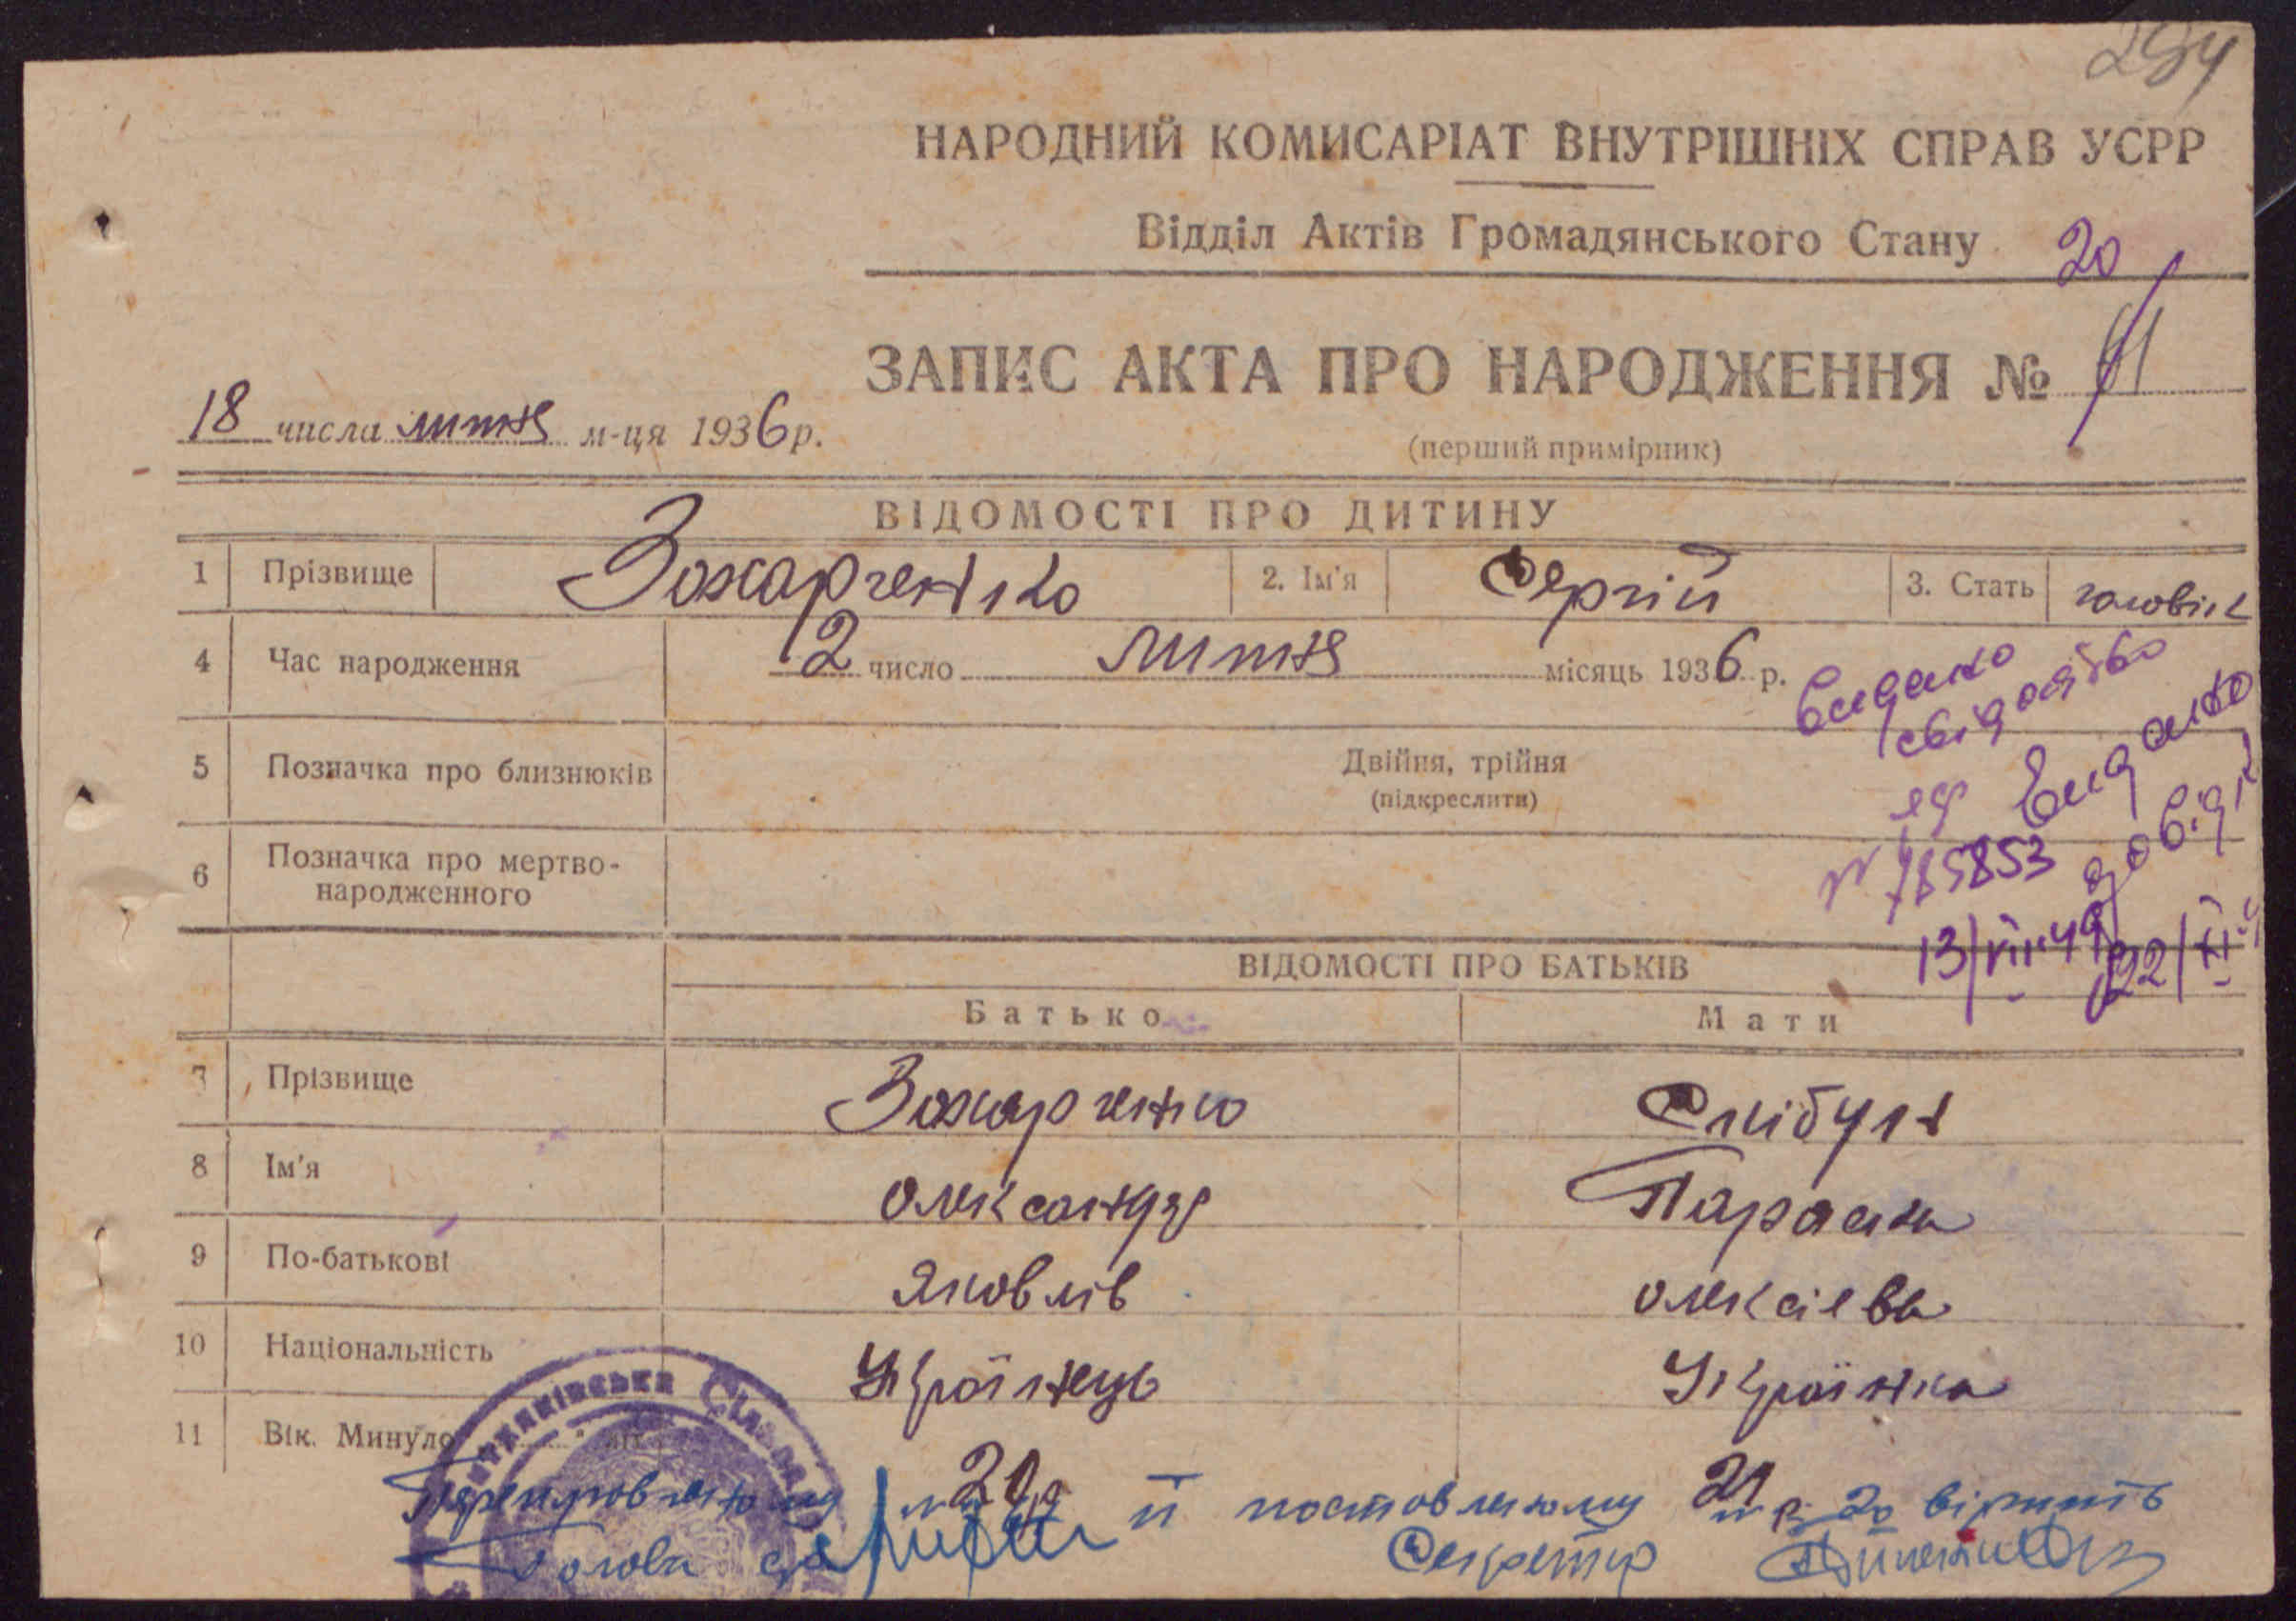 294
НАРОДНИЙ КОМИСАРІАТ ВНУТРІШНІХ СПРАВ УСРР
Відділ Актів Громадянського Стану
20
ЗАПИС АКТА ПРО НАРОДЖЕННЯ №
18 числа лютня м-ця 1936 р.
(перший примірник)
ВІДОМОСТІ ПРО ДИТИНУ
1 Прізвище Захарченко 2. Ім'я Сергій 3. Стать чоловік
4 Час народження 2 число лютня місяць 1936 р.
Видано
свідоство
5 Позначка про близнюків Двійня, трійня
(підкреслити)
Видано
№ 785853
6 Позначка про мертво-
народженного
13/VII-49
22/XI
ВІДОМОСТІ ПРО БАТЬКІВ
Батько Мати
7 Прізвище Захарченко Скібун
8 Ім'я Олександр Параска
9 По-батькові Яковлів Олексіевна
10 Національність Українець Українка
11 Вік. Минуло літ 21
й поставленому 20 вірить
Голова Секретар